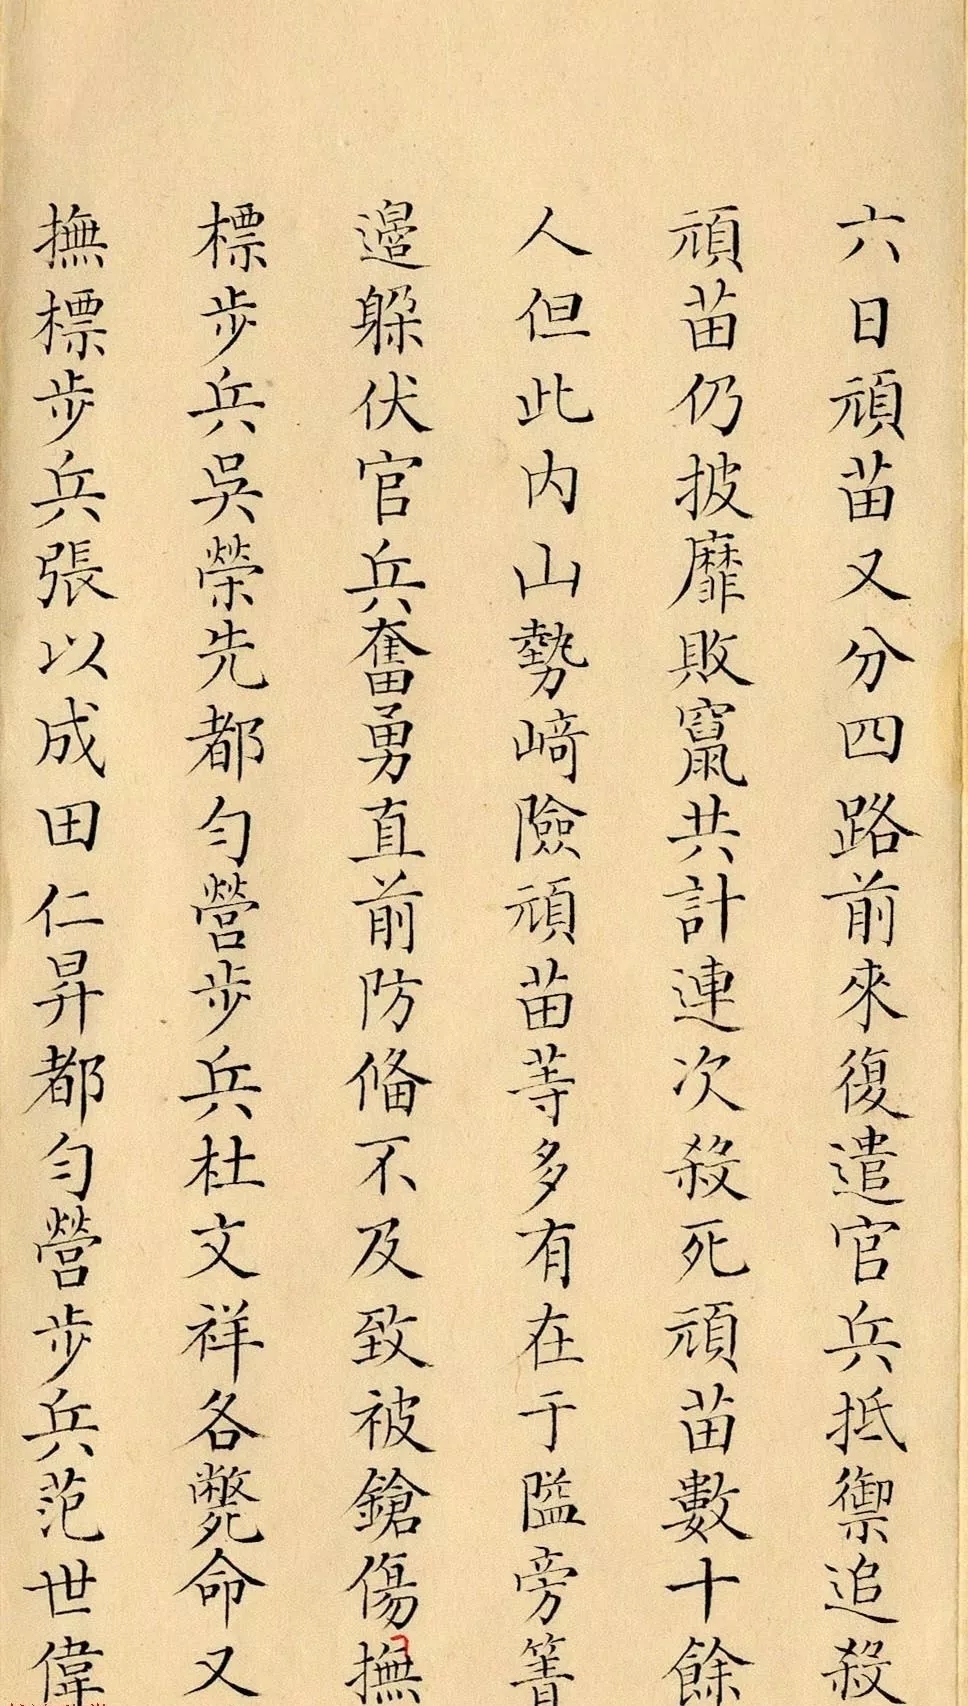 六日頑苗又分四路前來復遣官兵抵禦追殺
頑苗仍披靡敗竄共計連次殺死頑苗數十餘
人但此内山勢崎險頑苗等多有在于隘旁箐
邉躲伏官兵奮勇直前防偹不及致被鎗傷撫
標步兵吳榮先都匀營步兵杜文祥各斃命又
撫標步兵張以成田仁昇都匀營步兵范世偉